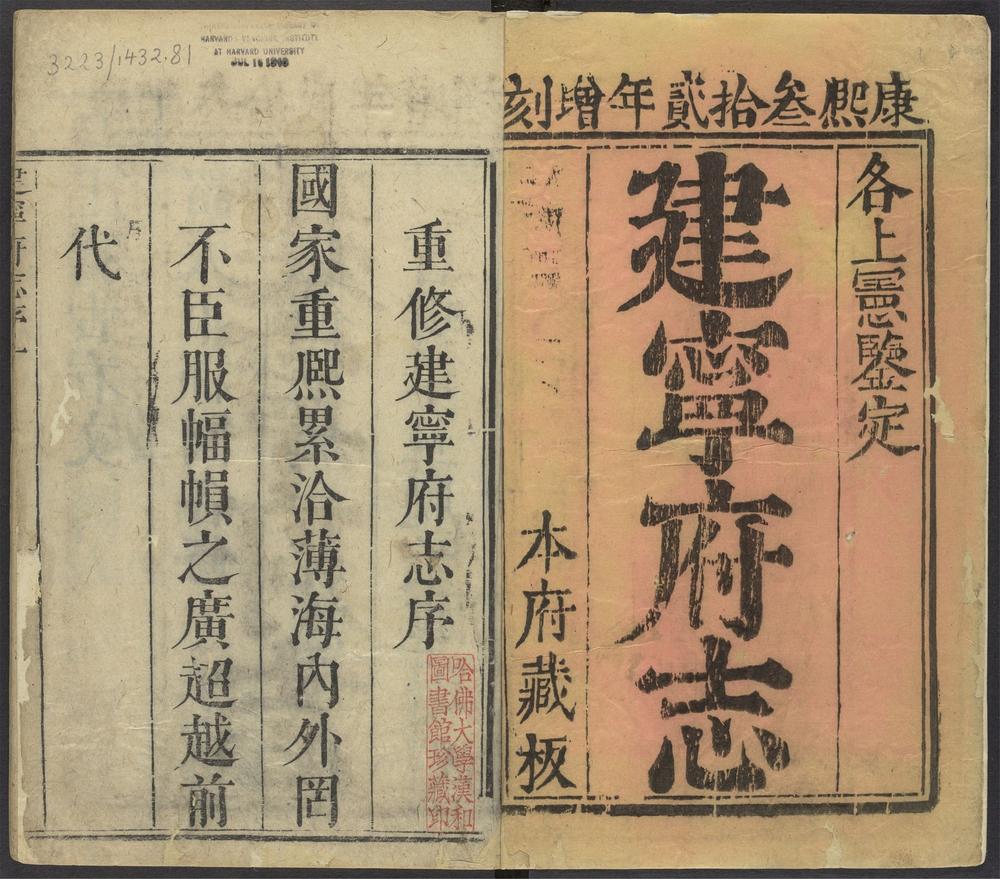 康熙叁拾貳年增刻
各上憲鑒定
建寧府志
本府藏板
3223/1432.81
AT HARVARD UNIVERSITY
重修建寧府志序
國家重熙累洽薄海內外罔
不臣服幅幀之廣超越前
代
哈佛大學漢和
圖書館珍藏印